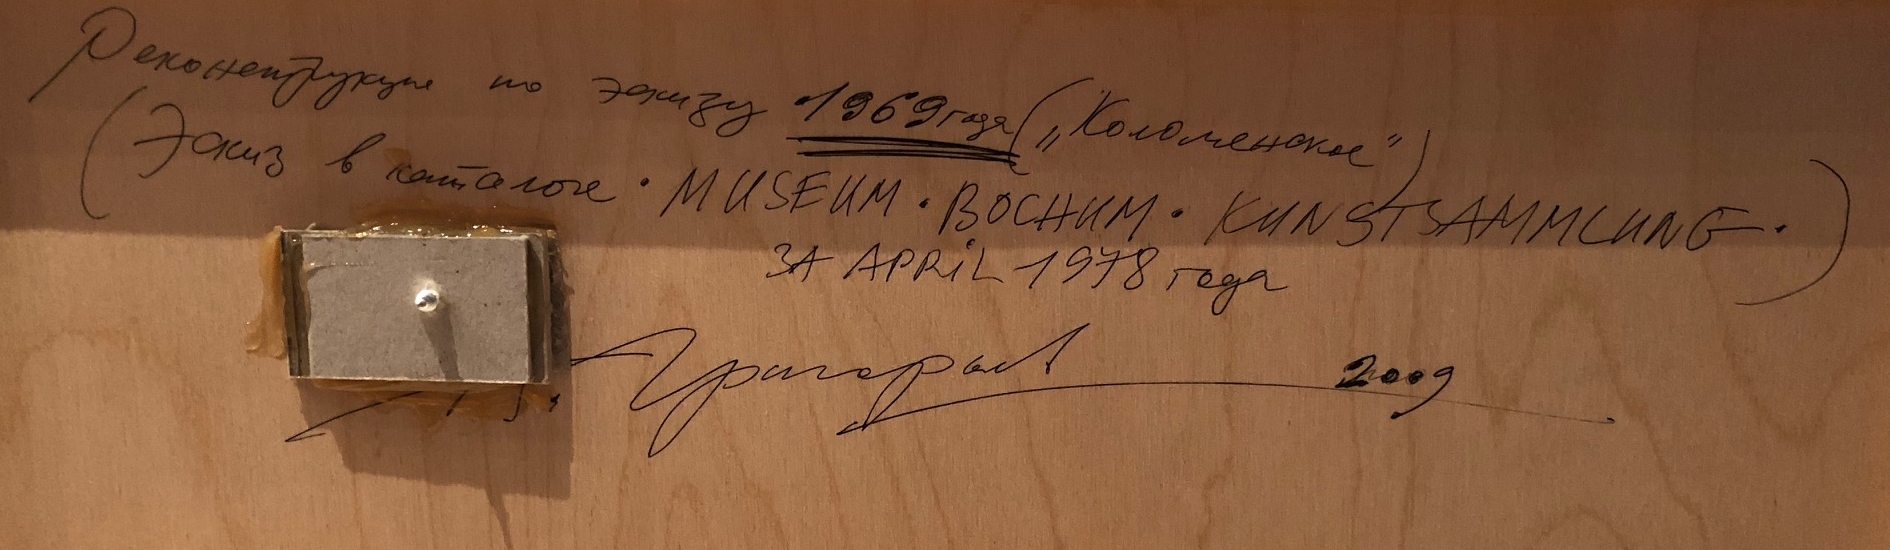 Реконструкция по эскизу 1969 года („Коломенское“)
(Эскиз в каталоге · MUSEUM · BOCHUM · KUNSTSAMMLUNG · )
ЗА APRiL 1978 года
Григорьев 2009